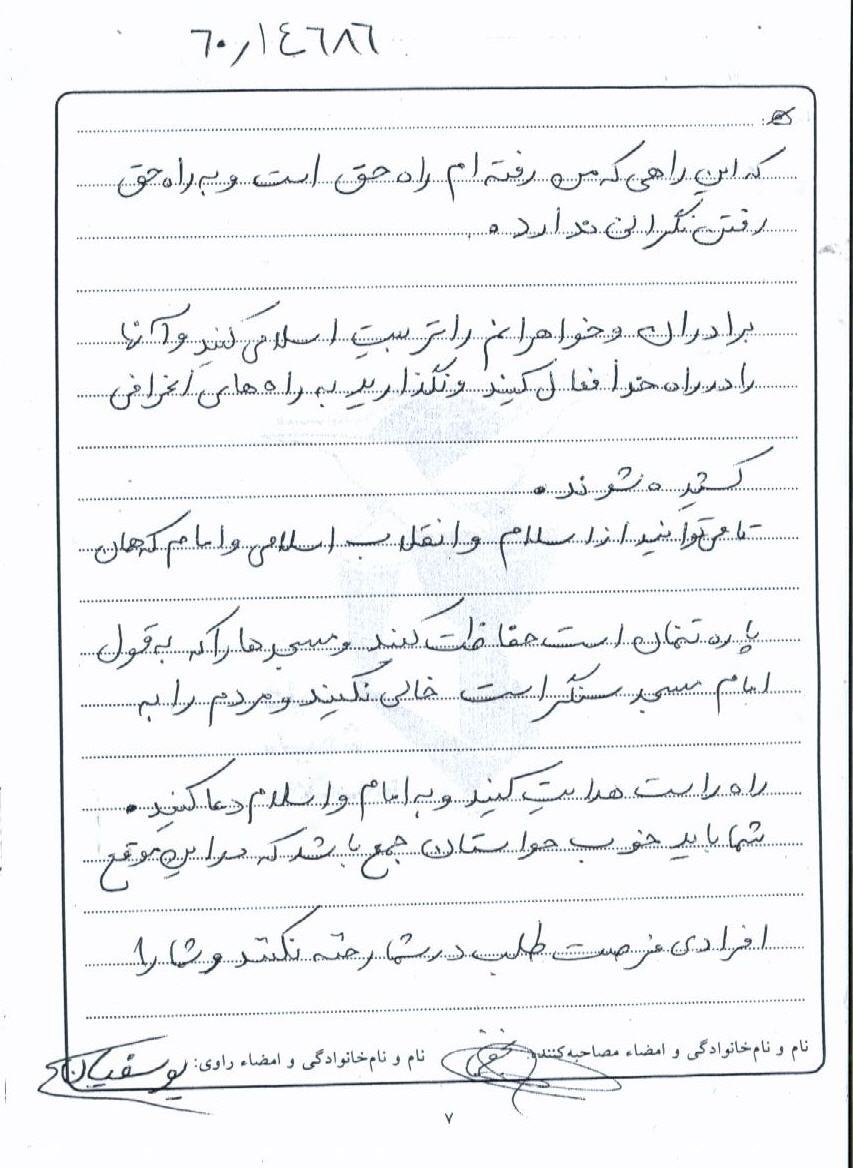 ۶۰٫۱۴۶۸۶
که این راهی که من رفته ام راه حق است و به راه حق
رفتن نگرانی ندارد.
برادران و خواهرانم را تربیت اسلامی کنید و آنها
را در راه خدا فعال کنید و نگذارید به راه های انحرافی
کشیده شوند.
تا می توانید از اسلام و انقلاب اسلامی و امام که همان
پاره تنمان است حفاظت کنند و مسجدها را که به قول
امام مسجد سنگر است خالی نکنید و مردم را به
راه راست هدایت کنید و به امام و اسلام دعا کنید.
شما باید خوب حواستان جمع باشد که در این موقع
افرادی فرصت طلب در شما رخنه نکنند و شما را
نام و نام‌خانوادگی و امضاء مصاحبه‌کننده:
نام و نام‌خانوادگی و امضاء راوی: یوسفیان
۷